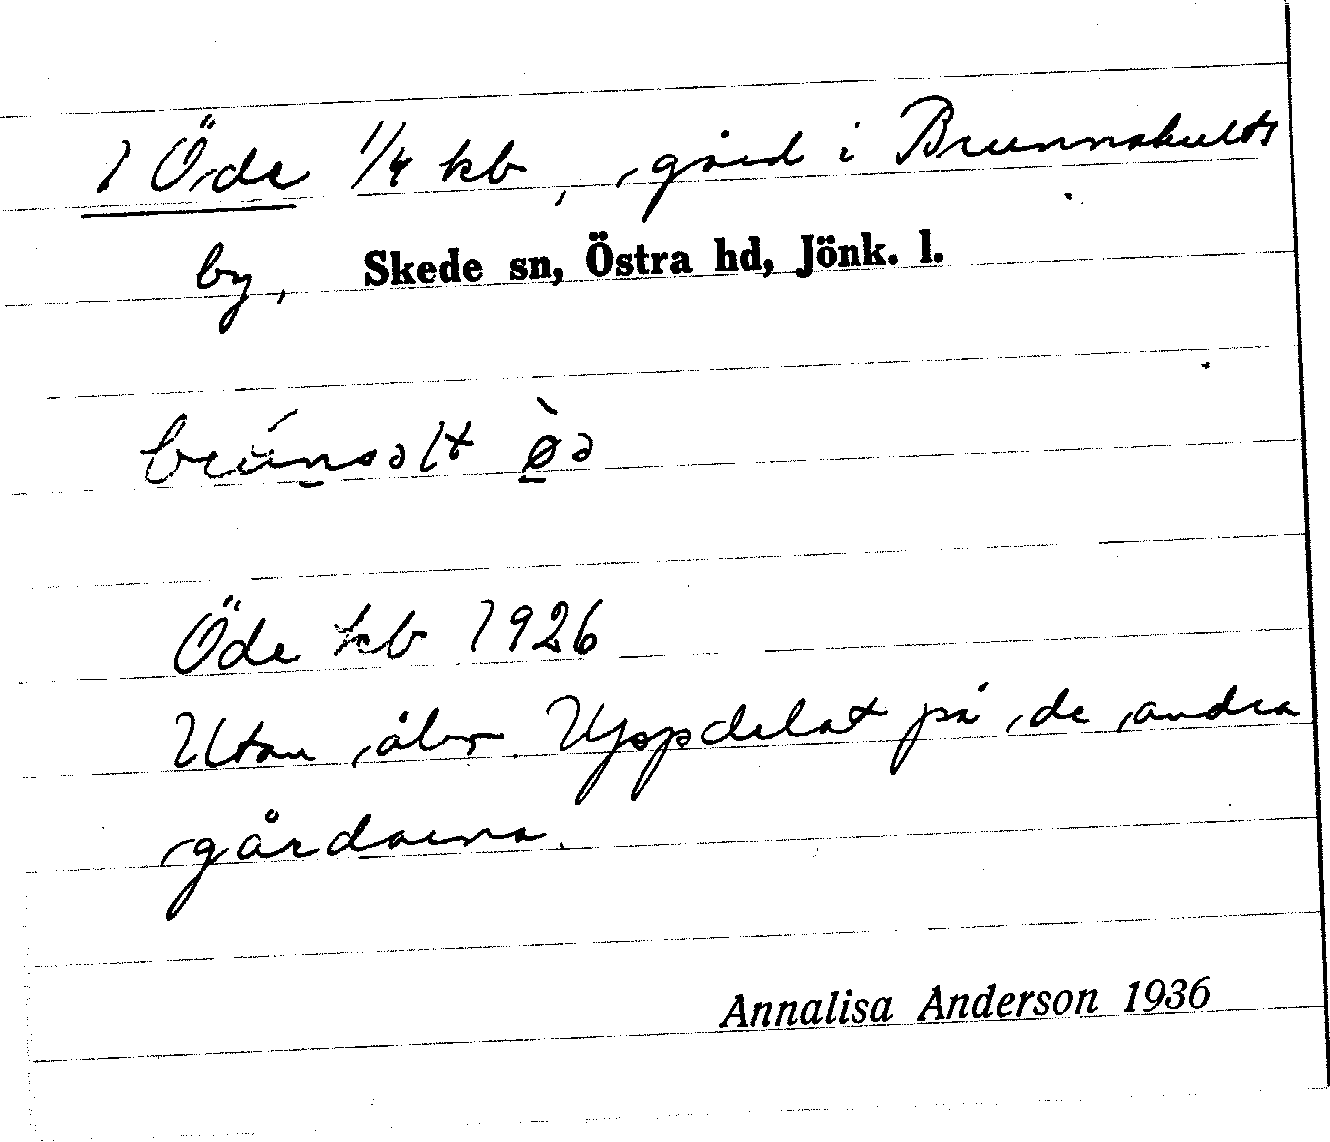 1 Öde 1/4 kb, gård i Brunnshults
by, Skede sn, Östra hd, Jönk. l.
brúnsəlt ø̀ə
Öde kb 1926
Utan åbn. Uppdelat på de andra
gårdarna.
Annalisa Anderson 1936